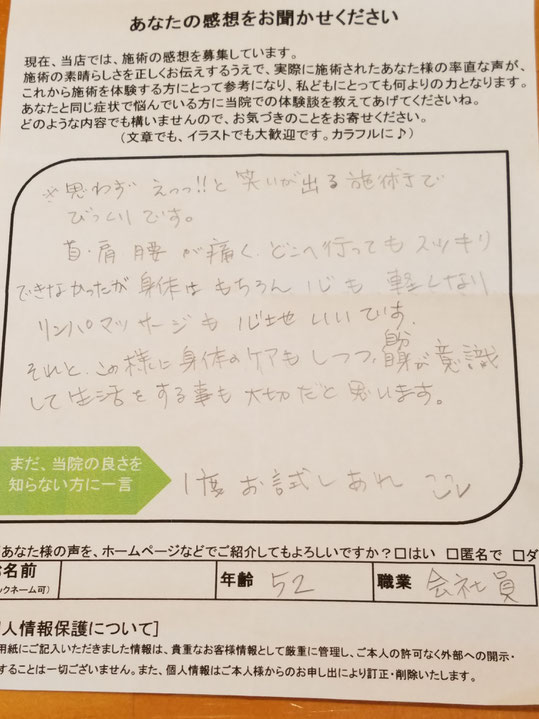 あなたの感想をお聞かせください
現在、当店では、施術の感想を募集しています。
施術の素晴らしさを正しくお伝えするうえで、実際に施術されたあなた様の率直な声が、
これから施術を体験する方にとって参考になり、私どもにとっても何よりの力となります。
あなたと同じ症状で悩んでいる方に当院での体験談を教えてあげてくださいね。
どのような内容でも構いませんので、お気づきのことをお寄せください。
(文章でも、イラストでも大歓迎です。カラフルに♪)
※思わず えっっ!!と笑いが出る施術まで
びっくりです。
首・肩 腰 が痛く、どこへ行っても スッキリ
できなかったが 身体は もちろん 心も 軽くなり
リンパマッサージも 心地 いいです.
それと、この様に身体のケアもしつつ、自分自身が意識
して生活をする事も大切だと思います。
まだ、当院の良さを
知らない方に一言
1度 お試しあれ
あなた様の声を、ホームページなどでご紹介してもよろしいですか?□はい □匿名で □ダ
お名前
ックネーム可)
年齢 52
職業 会社員
個人情報保護について]
用紙にご記入いただきました情報は、貴重なお客様情報として厳重に管理し、ご本人の許可なく外部への開示・
することは一切ございません。また、個人情報はご本人様からのお申し出により訂正・削除いたします。